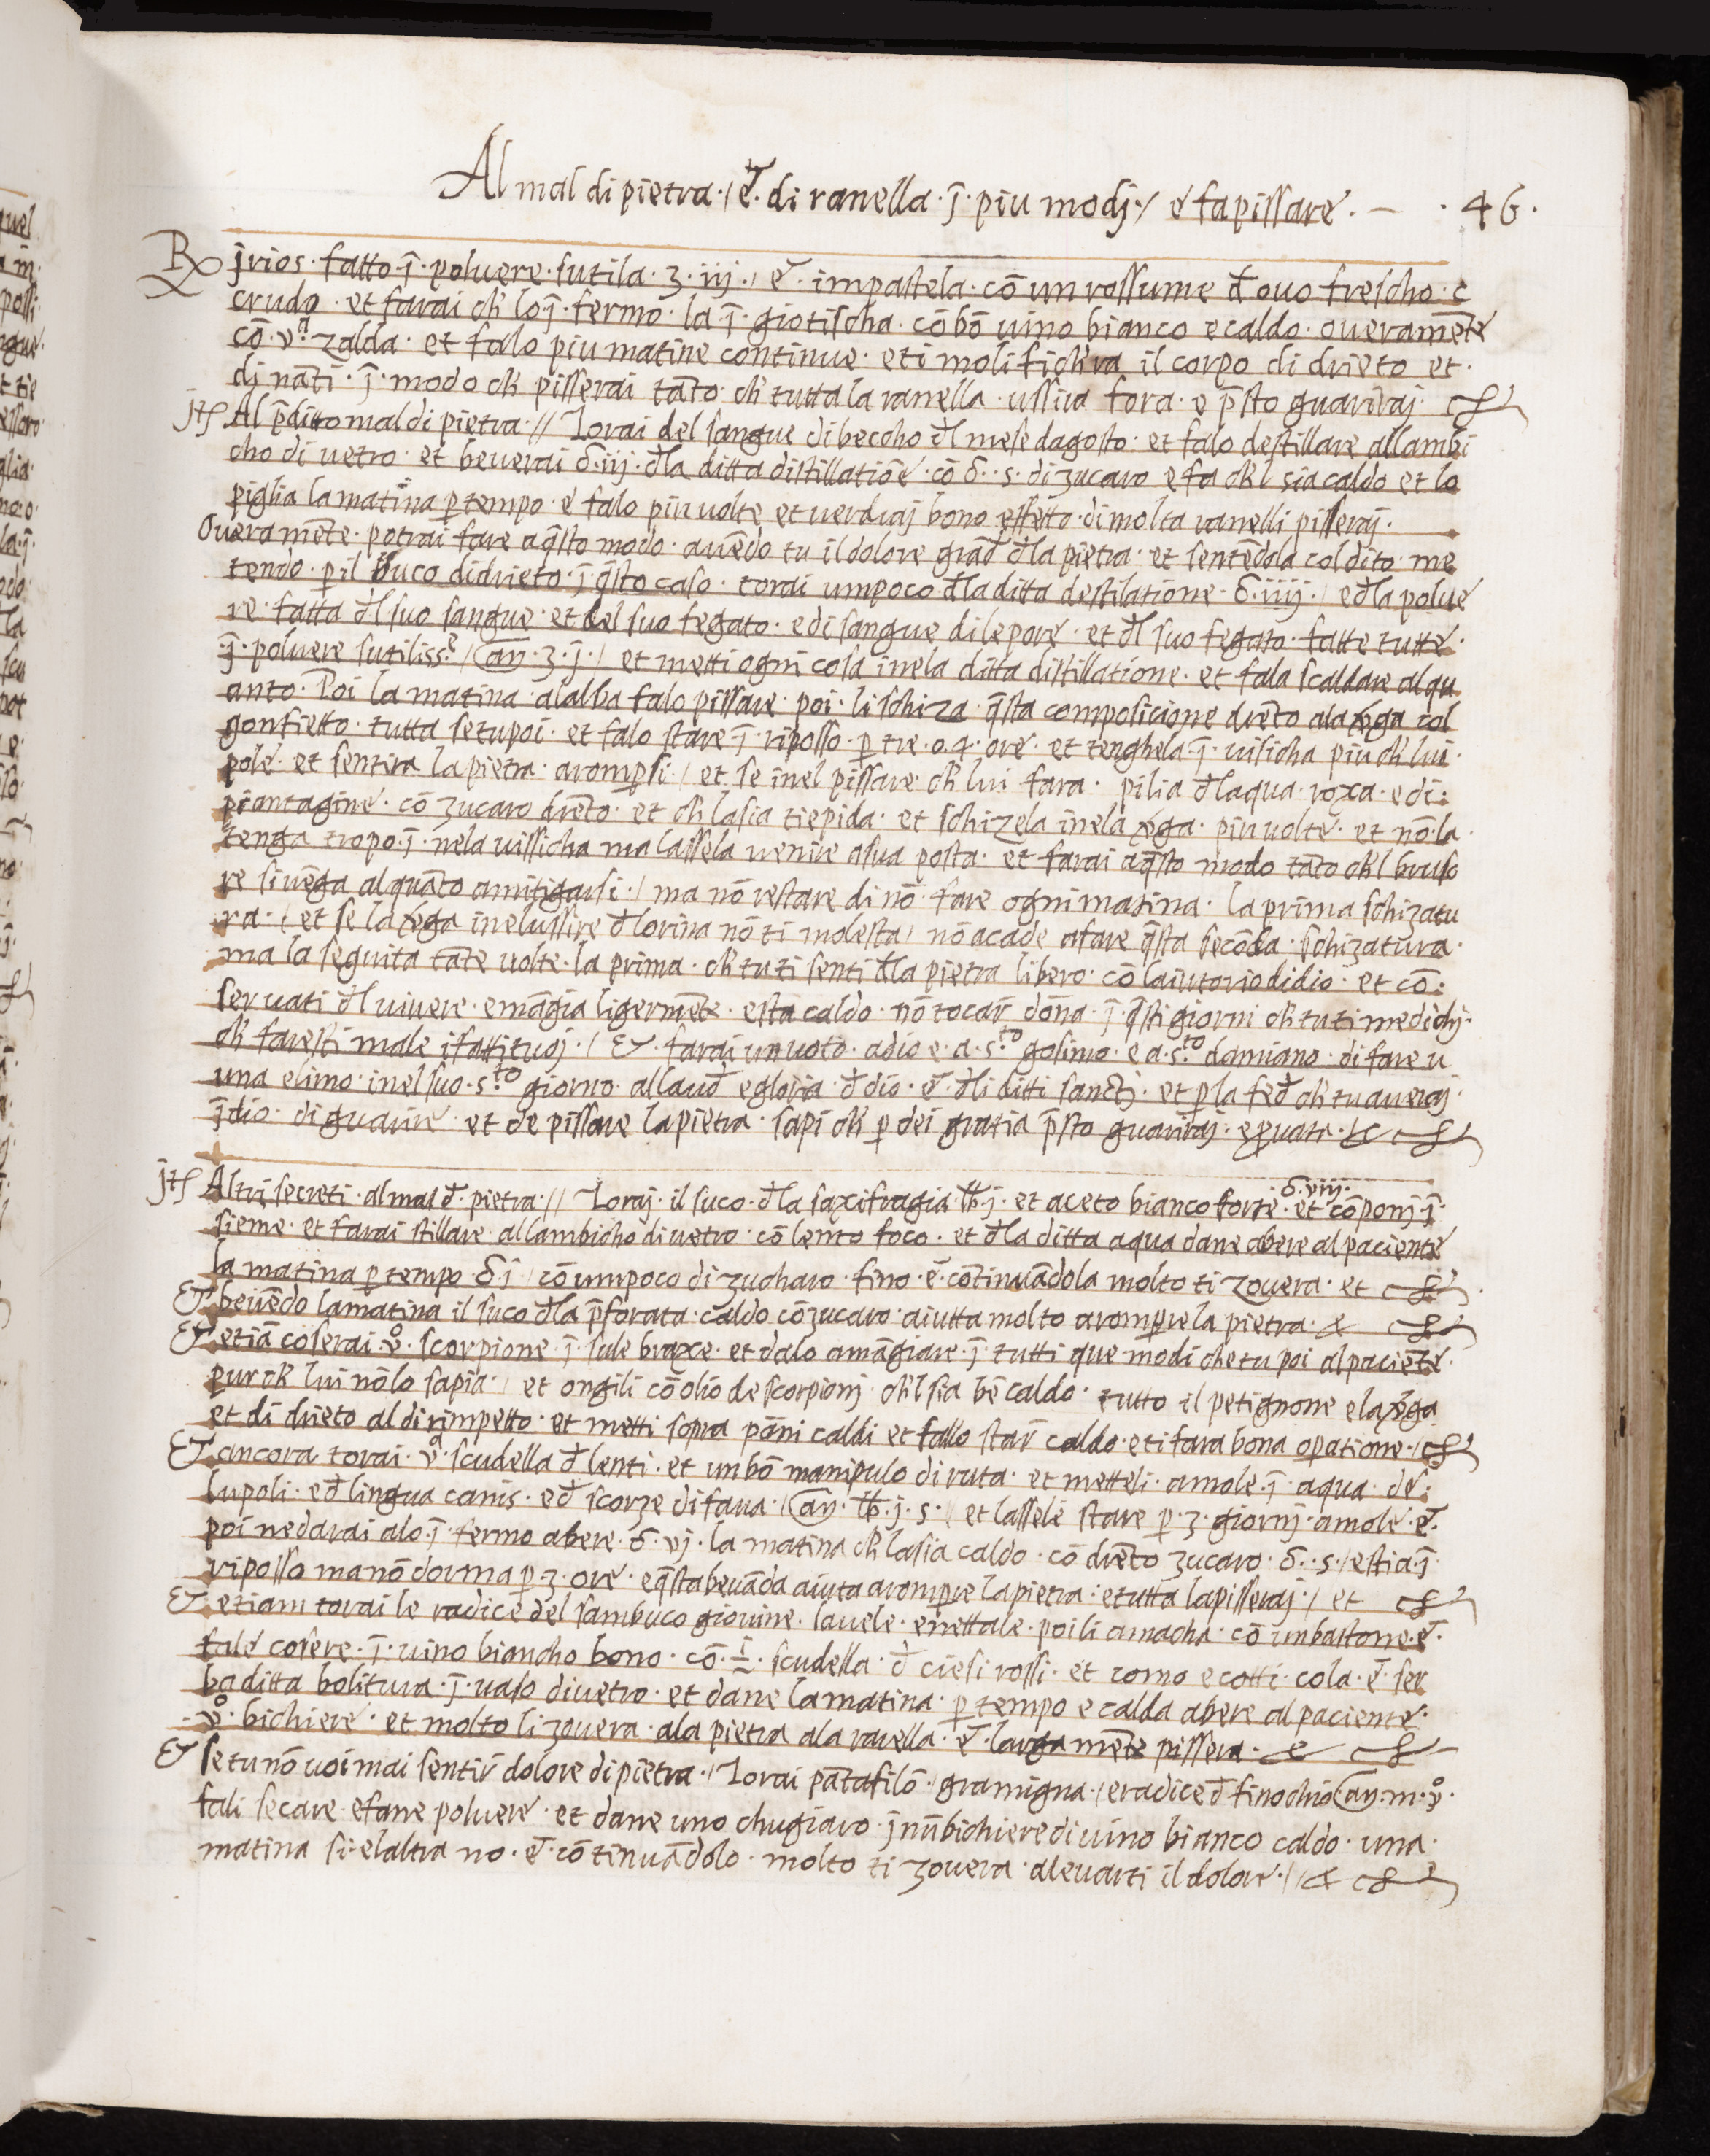 Al mal di pietra ·/ Et̄· di ranella · j̄· piu modj·/ e fa pissare · — · 46 ·
℞ jrios · fatto · j̄ · poluere · sutila · ʒ · iij ·/ et̄ · impastela · cō un rossume đ ouo frescho · e
crudo · et farai ch̄ lo j̄·fermo · la j̄· giotischa · cō bō uino bianco e caldo · oueramēte
cō · vᵃ zalda · et falo piu matine continue · eti molifich'ra il corpo di drieto et ·
dj nāti · j̄ · modo ch̄ pisserai tāto ch̄ tutta la ranella · ussira fora · e p̄sto guariraj ·
jtſ Al p̄ditto mal di pietra // Torai del sangue di beccho đl mese dagosto · et falo destillare allambi
cho di uetro · et beuerai ℥ · iij · đla ditta distillatiōe · cō ℥ · s · di zucaro e fa ch̄l sia caldo et lo
piglia la matina p̱ tempo · e falo piu uolte et uerdraj bono effetto · di molta ranelli pisseraj ·
Oueramēte · potrai fare a q̄sto modo · auēdo tu il dolore grāđ đla pietra · et sentēdola col dito · me
tendo · p̱ il buco didrieto · j̄ q̄sto caso · torai umpoco đla ditta destilatione · ℥ · iiij ·/ e đla polue
re · fatta đl suo sangue · et del suo fegato · e di sangue di lepore · et đl suo fegato · fatte tutte ·
· j̄ · poluere sutiliss.ᵉ / añ · ʒ · j ·/ et metti ogni cosa inela ditta distillatione · et fala scaldare alqu
anto · Poi la matina · alalba falo pissare · poi · li schiza · q̄sta composicione drēto ala v̄ga col
gonfietto · tutta se tu poi · et falo stare j̄ · riposso · p̱ tre · o · 4 · ore · et tenghela · j̄ · uisicha piu ch̄ lui ·
pole · et sentira la pietra · arompsi ·/ et se inel pissare · ch̄ lui fara · pilia đlaqua · roxa · e di ·
piantagine · cō zucaro drēto · et ch̄ la sia tiepida · et schizela inela v̄ga · piu uolte · et nō · la ·
tenga tropo · j̄ · nela uissicha ma lassela uenire a sua posta · et farai a q̄sto modo tāto ch̄l bruso
re si uēga alquāto amitigarsi ·/ ma nō restare di nō · fare ogni matina · la prima schizatu
ra ·/ et se la v̄ga inelussire đlorina nō ti molesta / nō acade afare q̄sta secōda · schizatura ·
ma la seguita tāte uolte · la prima · ch̄ tu ti senti đla pietra libero · cō laiutorio didio · et cō :
seruati đl uiuere · e māgia ligermēte · esta caldo · nō tocar̄ dōna · j̄ q̄sti giorni ch̄ tu ti medichj ·
ch̄ faresti male i fatti tuoj ·/ Et · farai un uoto · adio e · a · s.ᵗᵒ gosimo · e a · s.ᵗᵒ damiano · di fare u
una elimo · inel suo · s.ᵗᵒ giorno · allauđ e gloria · đ dio · et̄ · đli ditti sanctj · et p̱ la feđ ch̄ tu aueraj ·
j̄ dio · di guarire · et de pissare la pietra · sapi ch̄ p̱ dei gratia p̄sto guariraj · e p̱uatr ·
jtſ Altri secreti · al mal đ · pietra // Toraj · il suco · đla saxifragia ℔ · j · et aceto bianco forte · ℥ · viij · et cōponj · j̄ ·
sieme · et farai stillare · allambicho di uetro · cō lento foco · et đla ditta aqua dane abere al paciente
la matina p̱ tempo ℥ j / cō umpoco di zucharo · fino · et̄ · cōtinuādola molto ti zouera · et
Et beuēdo la matina il suco đla p̄forata · caldo cō zucaro · aiutta molto arompere la pietra · &
Et etiā coserai · v° · scorpione · j̄ · sule braxe · et dalo amāgiare · j̄ · tutti que modi che tu poi al paciēte ·
pur ch̄ lui nō lo sapia ·/ et ongili cō olio de scorpionj · ch̄l sia bē caldo · tutto il petignone e la v̄ga
et di drieto al dirimpetto · et metti sopra pāni caldi et fallo star̄ caldo · eti fara bona operatione ·
Et ancora torai · vᵃ · scudella đ lenti · et un bō manipulo di ruta · et metteli · amole · j̄ · aqua · de ·
lupoli · eđ lingua canis · eđ scorze di faua · / añ · ℔ · j · s · // et lassele stare p̱ · 3 · giornj · amole · et̄ ·
poi ne darai alo · j̄ · fermo abere · ℥ · vj · la matina ch̄ la sia caldo · cō drēto zucaro · ℥ · s · / e stia · j̄ ·
riposso ma nō dorma p̱ 3 · ore · e q̄sta beuāda aiuta arompre la pietra · e tutta la pisseraj ·/ et
Et etiam torai le radice del sambuco giouine · lauele · enettale · poi li amacha · cō un bastone · et̄ ·
fale cosere · j̄ · uino biancho bono · cō · ½ · scudella · đ ciesi rossi · et como e cotti · cola · et̄ · ser
ba ditta bolitura · j̄ · uaso diuetro · et dane la matina · p̱ tempo e calda abere al paciente ·
· v° · bichiere · et molto li zouera · ala pietra ala ranella · et̄ · largamēte pissera ·
Et se tu nō uoi mai sentir̄ dolore di pietra ·/ Torai pātafilō · gramigna ·/ e radice đ finochio añ · m · v° ·
fali secare e fane poluere · et dane uno chugiaro · j nū bichiere di uino bianco caldo · una ·
matina si · elaltra no · et̄ · cōtinuādolo · molto ti zouera · aleuarti il dolore ·/